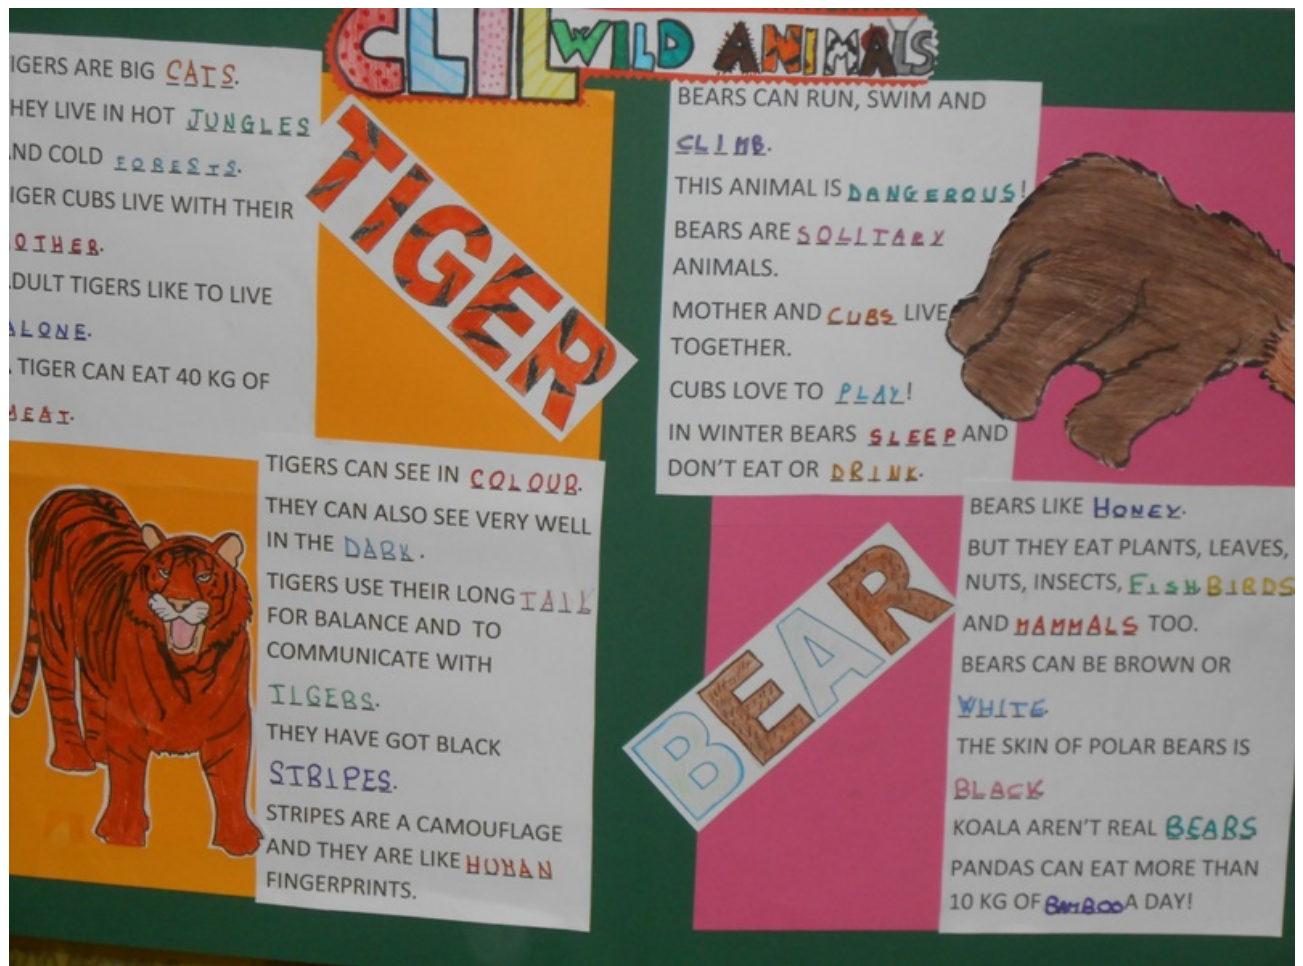 CLIL WILD ANIMALS
IGERS ARE BIG CATS.
HEY LIVE IN HOT JUNGLES
ND COLD FORESTS.
IGER CUBS LIVE WITH THEIR
OTHER.
DULT TIGERS LIKE TO LIVE
ALONE.
TIGER CAN EAT 40 KG OF
MEAT.
TIGER
TIGERS CAN SEE IN COLOUR.
THEY CAN ALSO SEE VERY WELL
IN THE DARK.
TIGERS USE THEIR LONG TAIL
FOR BALANCE AND TO
COMMUNICATE WITH
TIGERS.
THEY HAVE GOT BLACK
STRIPES.
STRIPES ARE A CAMOUFLAGE
AND THEY ARE LIKE HUMAN
FINGERPRINTS.
BEARS CAN RUN, SWIM AND
CLIMB.
THIS ANIMAL IS DANGEROUS!
BEARS ARE SOLITARY
ANIMALS.
MOTHER AND CUBS LIVE
TOGETHER.
CUBS LOVE TO PLAY!
IN WINTER BEARS SLEEP AND
DON'T EAT OR DRINK.
BEAR
BEARS LIKE HONEY.
BUT THEY EAT PLANTS, LEAVES,
NUTS, INSECTS, FISH BIRDS
AND MAMMALS TOO.
BEARS CAN BE BROWN OR
WHITE.
THE SKIN OF POLAR BEARS IS
BLACK
KOALA AREN'T REAL BEARS
PANDAS CAN EAT MORE THAN
10 KG OF BAMBOO A DAY!